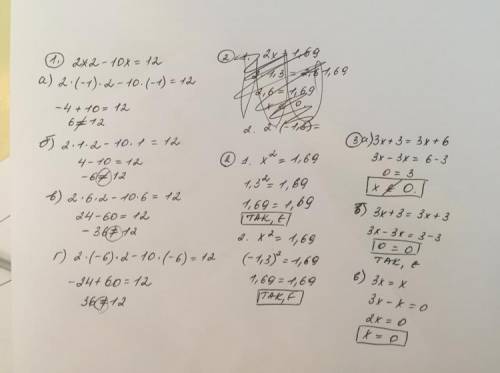 1. 2x2 - 10x = 12
а) 2·(-1)·2 - 10·(-1) = 12
-4 + 10 = 12
6 ≠ 12
б) 2·1·2 - 10·1 = 12
4 - 10 = 12
-6 ≠ 12
в) 2·6·2 - 10·6 = 12
24 - 60 = 12
-36 ≠ 12
г) 2·(-6)·2 - 10·(-6) = 12
-24 + 60 = 12
36 ≠ 12
2. 1. 2x = 1,69
2,6 = 1,69
2. 2·(-1,3) =
2 1. x² = 1,69
1,3² = 1,69
1,69 = 1,69
ТАК, Є
2. x² = 1,69
(-1,3)² = 1,69
1,69 = 1,69
ТАК, Є
3 а) 3x + 3 = 3x + 6
3x - 3x = 6 - 3
0 = 3
x ∉ 0
б) 3x + 3 = 3x + 3
3x - 3x = 3 - 3
0 = 0
ТАК, Є
в) 3x = x
3x - x = 0
2x = 0
x = 0